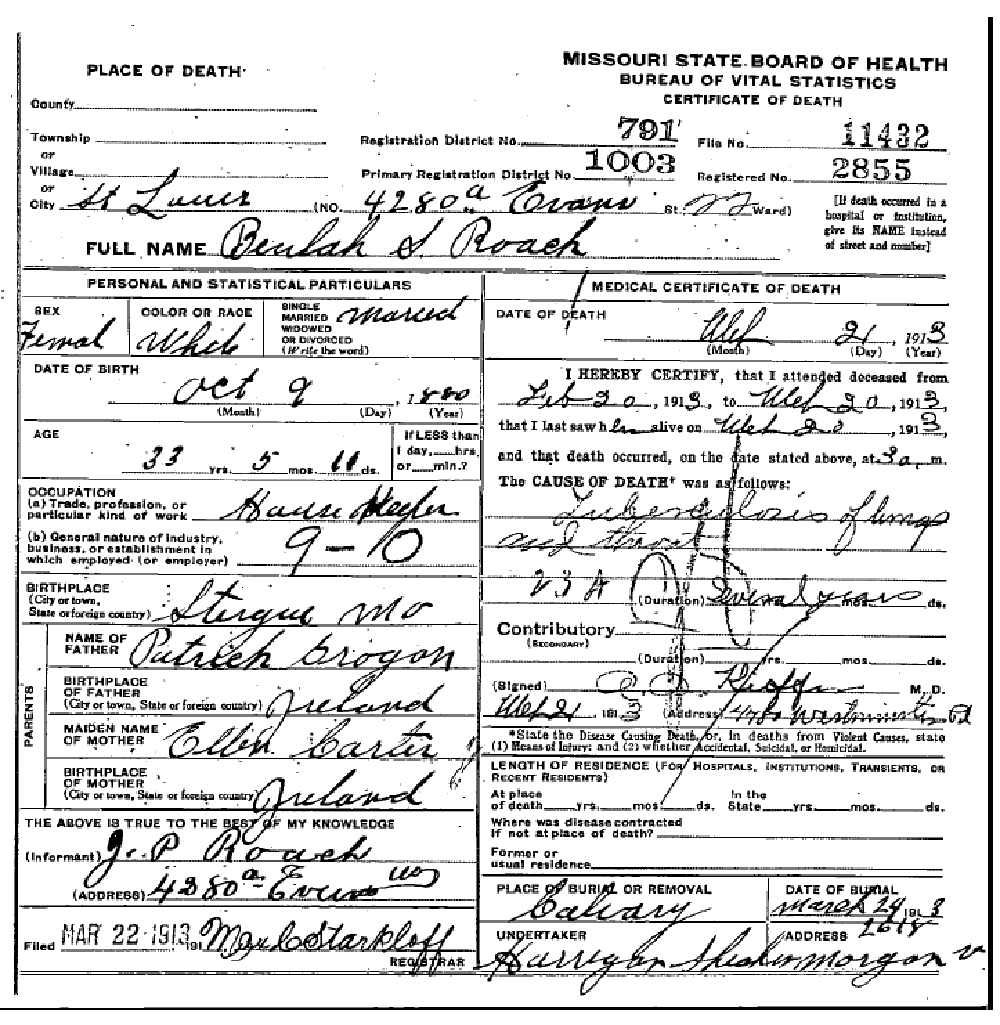 PLACE OF DEATH
MISSOURI STATE BOARD OF HEALTH
BUREAU OF VITAL STATISTICS
CERTIFICATE OF DEATH
County
Township
or
Village
or
City St Louis
Registration District No. 791
File No. 11432
Primary Registration District No. 1003
Registered No. 2855
(NO. 4280a Evans St. 22 Ward)
[If death occurred in a
hospital or institution,
give its NAME instead
of street and number]
FULL NAME Beulah S. Roach
PERSONAL AND STATISTICAL PARTICULARS
SEX
Femal
COLOR OR RACE
White
SINGLE
MARRIED
WIDOWED
OR DIVORCED
(Write the word)
Maried
DATE OF BIRTH
Oct 9, 1880
(Month) (Day) (Year)
AGE
33 yrs. 5 mos. 11 ds.
If LESS than
1 day, hrs.
or min.?
OCCUPATION
(a) Trade, profession, or
particular kind of work House Keeper
(b) General nature of industry,
business, or establishment in
which employed (or employer)
9-10
BIRTHPLACE
(City or town,
State or foreign country) Sturgue Mo
PARENTS
NAME OF
FATHER Patrick Grogan
BIRTHPLACE
OF FATHER
(City or town, State or foreign country) Ireland
MAIDEN NAME
OF MOTHER Ellen Carter
BIRTHPLACE
OF MOTHER
(City or town, State or foreign country) Ireland
THE ABOVE IS TRUE TO THE BEST OF MY KNOWLEDGE
(Informant) J. P Roach
(ADDRESS) 4280a Evans
Filed MAR 22 1913 191 Max C Starkloff
REGISTRAR
MEDICAL CERTIFICATE OF DEATH
DATE OF DEATH
Mch 21, 1913
(Month) (Day) (Year)
I HEREBY CERTIFY, that I attended deceased from
Feb 20, 1913, to Mch 20, 1913,
that I last saw her alive on Mch 20, 1913,
and that death occurred, on the date stated above, at 3 a. m.
The CAUSE OF DEATH* was as follows:
Tuberculosis of lungs
and throat
23 A
(Duration) Several years mos. ds.
Contributory
(SECONDARY)
(Duration) yrs. mos. ds.
(Signed) M. D.
Mch 21 1913 (Address) Westminster Pl
*State the Disease Causing Death, or, in deaths from Violent Causes, state
(1) Means of Injury; and (2) whether Accidental, Suicidal, or Homicidal.
LENGTH OF RESIDENCE (FOR HOSPITALS, INSTITUTIONS, TRANSIENTS, OR
RECENT RESIDENTS)
At place
of death yrs. mos. ds.
In the
State yrs. mos. ds.
Where was disease contracted
If not at place of death?
Former or
usual residence
PLACE OF BURIAL OR REMOVAL
Calvary
DATE OF BURIAL
March 24 1913
UNDERTAKER
ADDRESS
Morgan